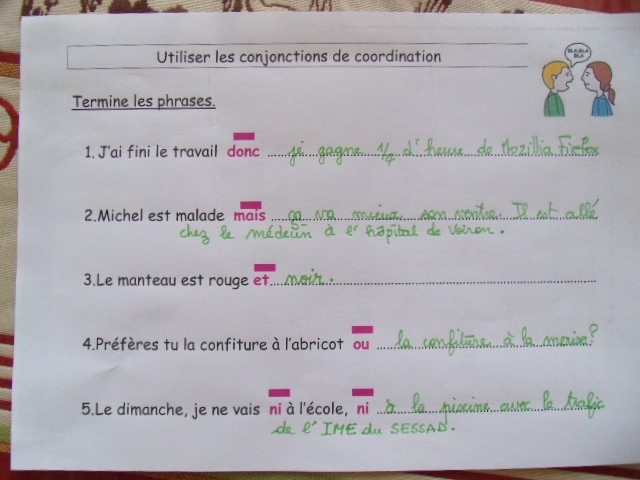 Utiliser les conjonctions de coordination
BLA BLA
BLA
Termine les phrases.
1. J'ai fini le travail donc je gagne 1/4 d'heure de Mozillia Firefox
2.Michel est malade mais ça va mieux son ventre. Il est allé
chez le médecin à l'hôpital de Voiron.
3.Le manteau est rouge et noir.
4.Préfères tu la confiture à l'abricot ou la confiture à la merise?
5.Le dimanche, je ne vais ni à l'école, ni à la piscine avec le trafic
de l'IME du SESSAD.